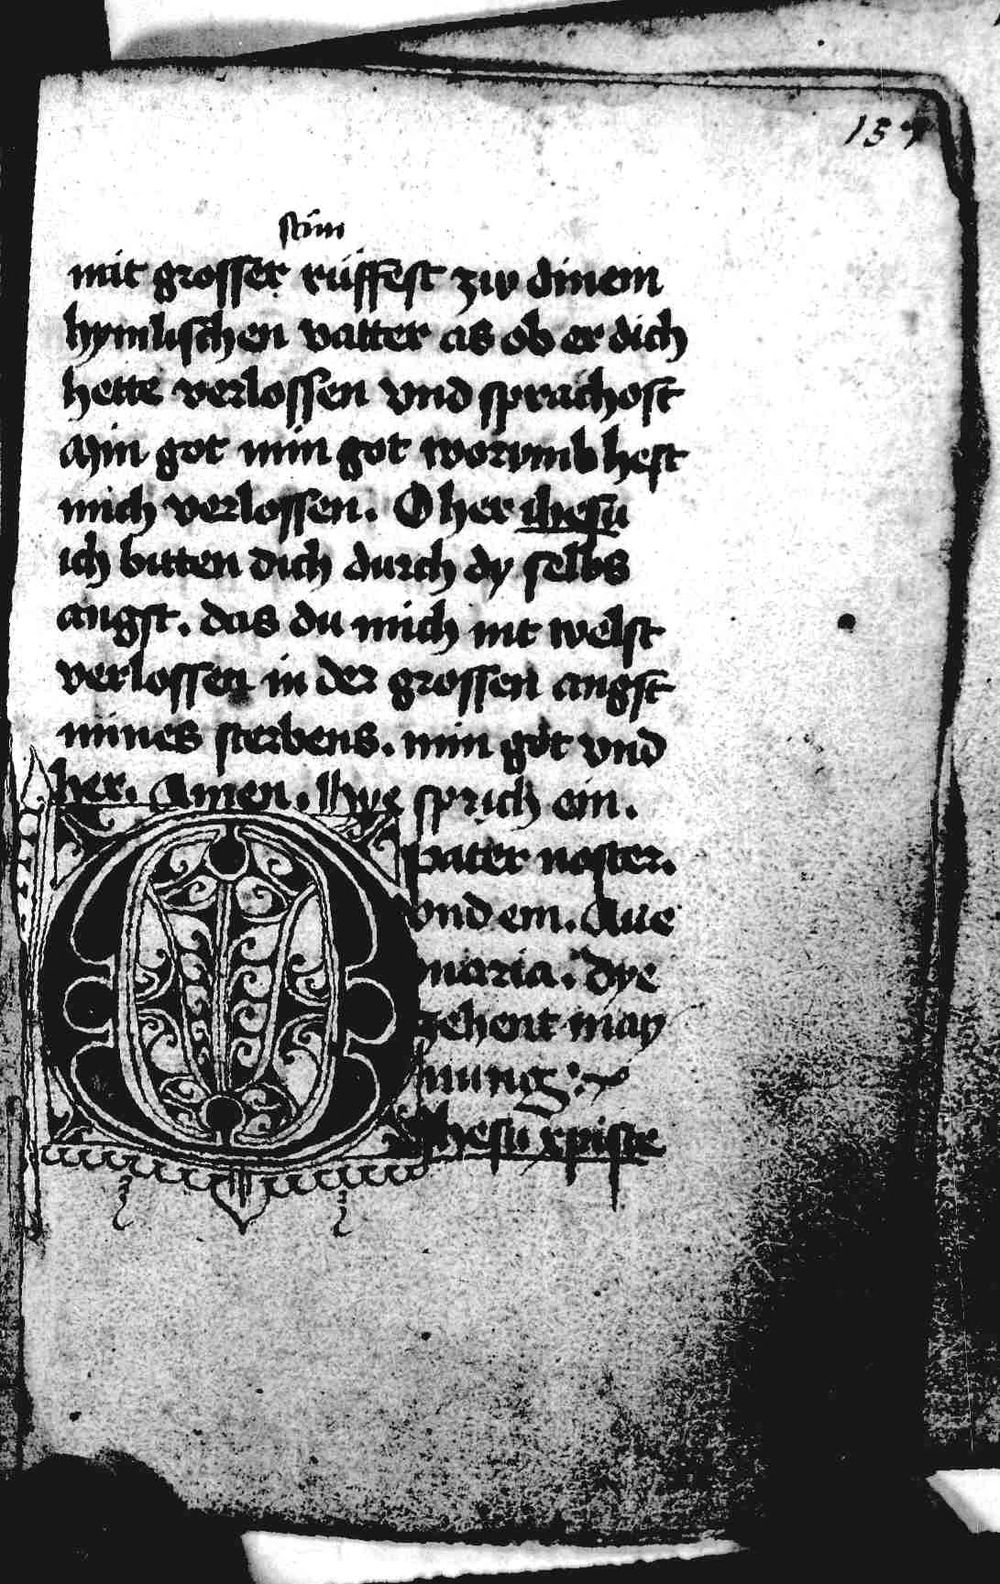 157
stim
mit grosser rüffest zw dinem
hymlischen vatter as ob er dich
hette verlossen vnd sprachost
Min got min got worvmb hest
mich verlossen. O her ihesu
ich bitten dich durch dy selbs
angst. das du mich nit welst
verlossen in der grossen angst
mines sterbens. min got vnd
her. Amen. Hye sprich ein.
pater noster.
vnd ein. Aue
maria. dye
zehent may
nung
O ihesu xpiste